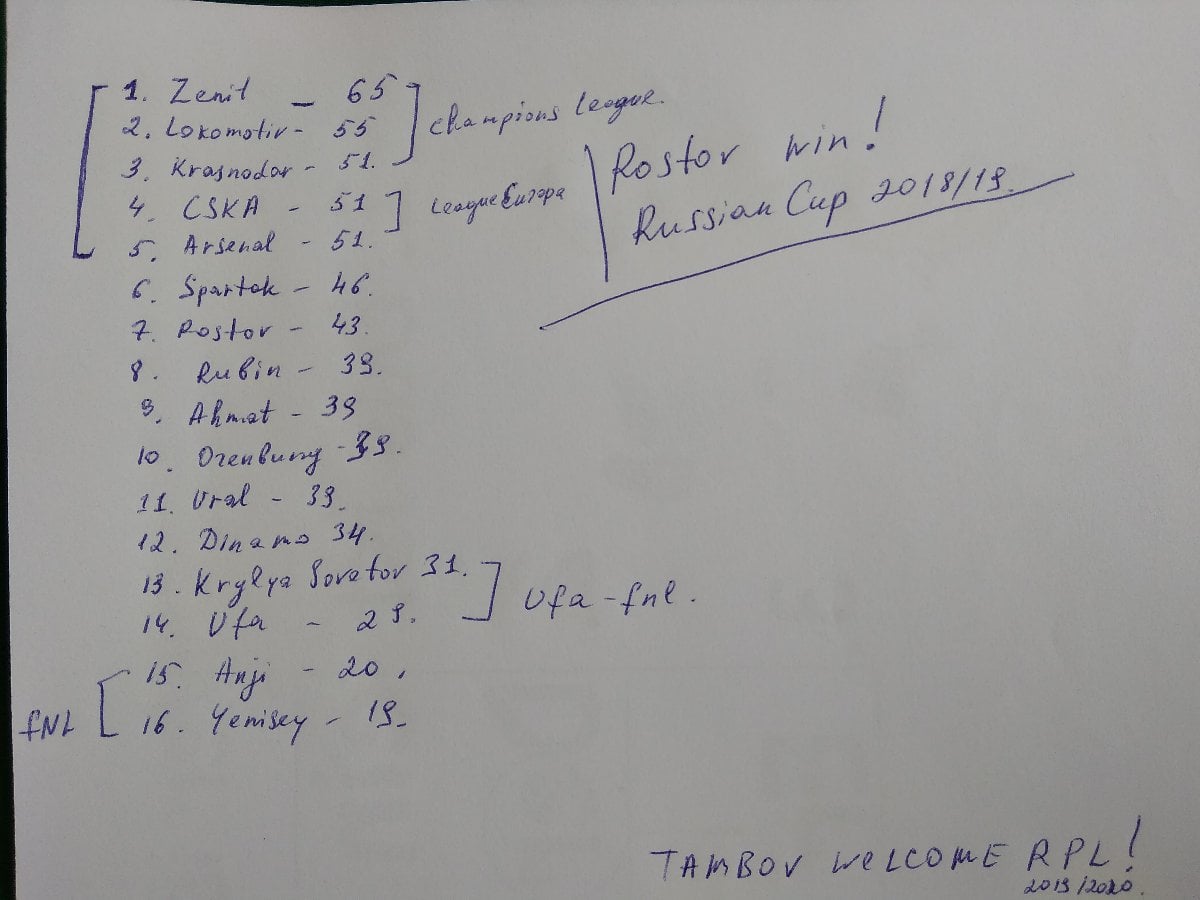 1. Zenit - 65
2. Lokomotiv - 55
3. Krasnodar - 51.
Champions League.
4. CSKA - 51
League Europa
5. Arsenal - 51.
6. Spartak - 46.
7. Rostov - 43.
8. Rubin - 39.
9. Ahmat - 39
10. Orenburg - 39.
11. Ural - 39.
12. Dinamo 34.
13. Krylya Sovetov 31.
14. Ufa - 29.
Ufa - fnl.
15. Anji - 20.
16. Yenisey - 19.
FNL
Rostov win!
Russian Cup 2018/19.
TAMBOV WELCOME RPL!
2019/2020.